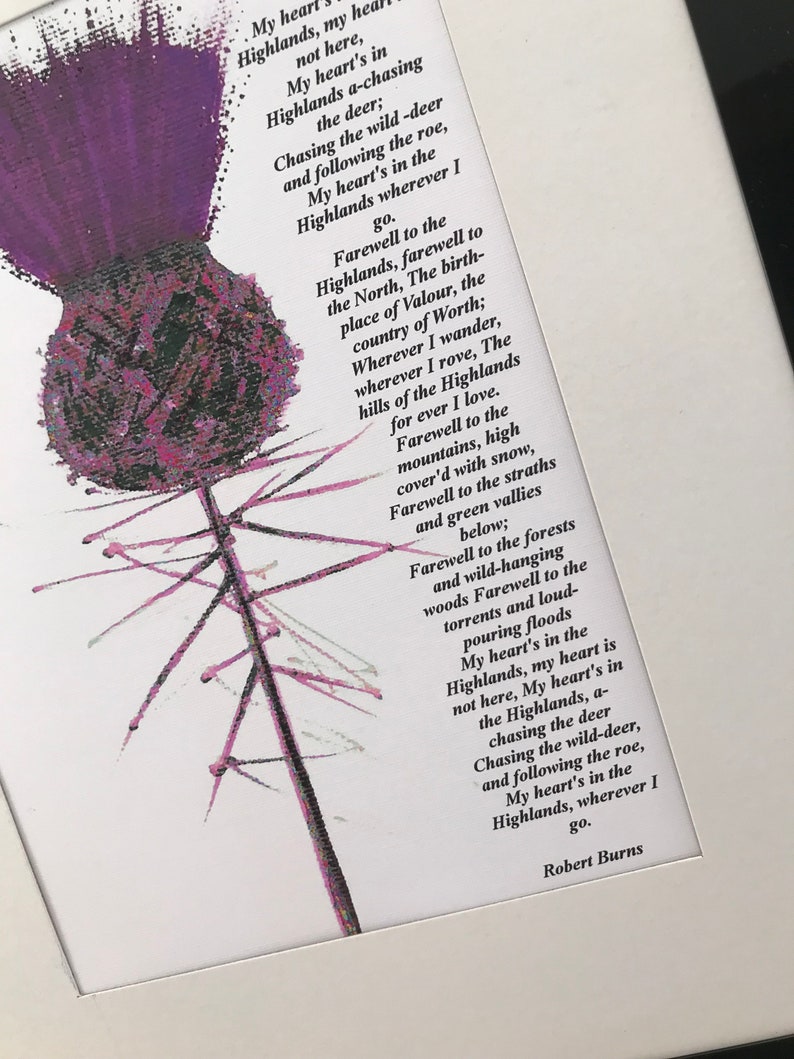 My heart's
Highlands, my heart
not here,
My heart's in
Highlands a-chasing
the deer;
Chasing the wild -deer
and following the roe,
My heart's in the
Highlands wherever I
go.
Farewell to the
Highlands, farewell to
the North, The birth-
place of Valour, the
country of Worth;
Wherever I wander,
wherever I rove, The
hills of the Highlands
for ever I love.
Farewell to the
mountains, high
cover'd with snow,
Farewell to the straths
and green vallies
below;
Farewell to the forests
and wild-hanging
woods Farewell to the
torrents and loud-
pouring floods
My heart's in the
Highlands, my heart is
not here, My heart's in
the Highlands, a-
chasing the deer
Chasing the wild-deer,
and following the roe,
My heart's in the
Highlands, wherever I
go.
Robert Burns